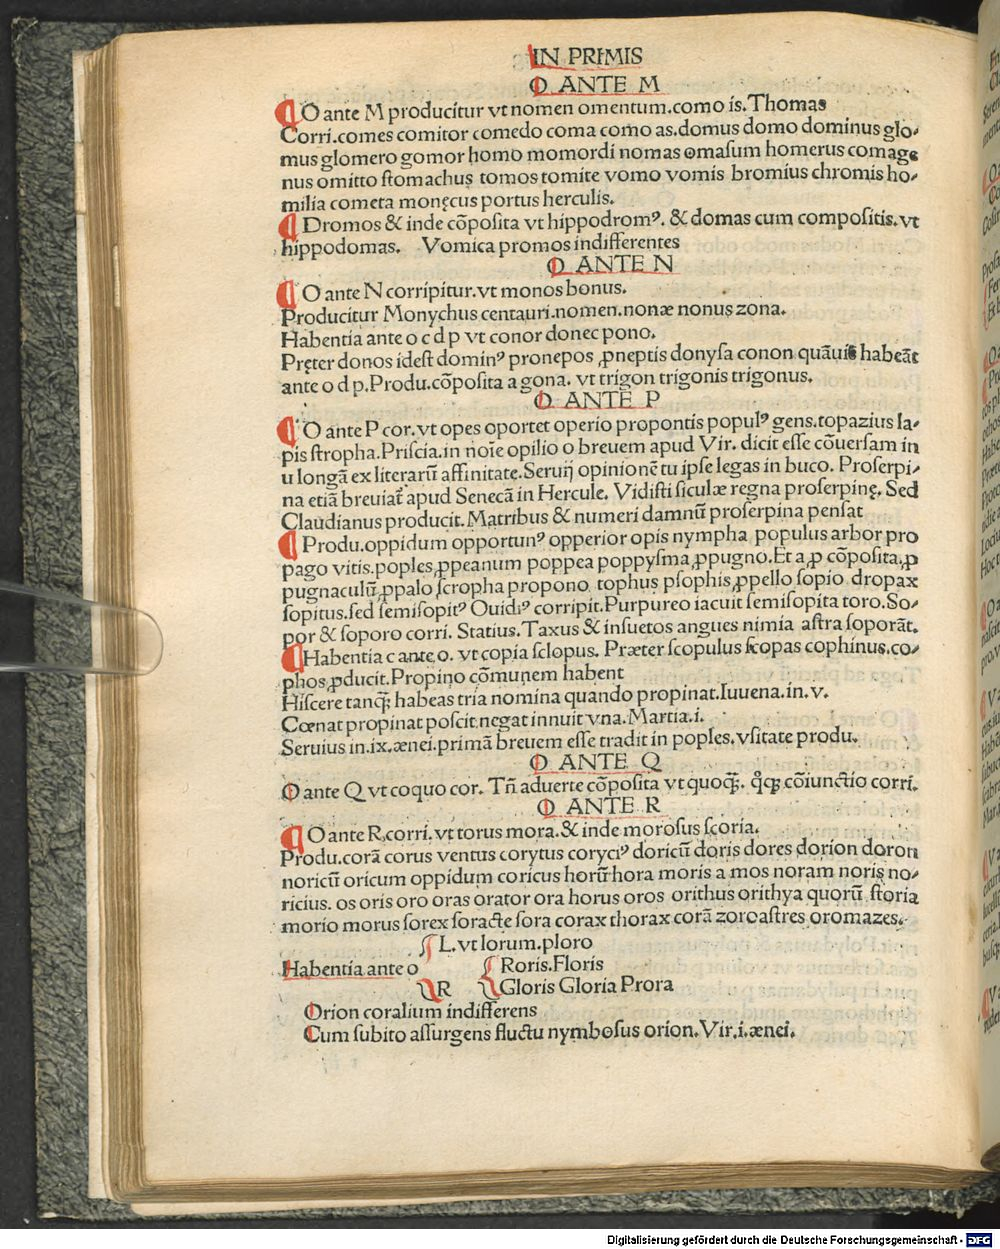 IN PRIMIS
O ANTE M
O ante M producitur vt nomen omentum.como is.Thomas
Corri.comes comitor comedo coma como as.domus domo dominus glo⸗
mus glomero gomor homo momordi nomas omasum homerus comage
nus omitto stomachus tomos tomite vomo vomis bromius chromis ho⸗
milia cometa monęcus portus herculis.
Dromos & inde cōposita vt hippodromꝰ. & domas cum compositis. vt
hippodomas. Vomica promos indifferentes
O ANTE N
O ante N corripitur.vt monos bonus.
Producitur Monychus centauri.nomen.nonæ nonus zona.
Habentia ante o c d p vt conor donec pono.
Pręter donos idest dominꝰ pronepos ꝓneptis donysa conon quāuis habeāt
ante o d p.Produ.cōposita a gona. vt trigon trigonis trigonus.
O ANTE P
O ante P cor.vt opes oportet operio propontis populꝰ gens.topazius la⸗
pis stropha.Priscia.in noīe opilio o breuem apud Vir. dicit esse cōuersam in
u longā ex literarū affinitate.Seruij opinionē tu ipse legas in buco. Proserpi⸗
na etiā breuiat̄ apud Senecā in Hercule. Vidisti siculæ regna proserpinę. Sed
Claudianus producit. Matribus & numeri damnū proserpina pensat
Produ.oppidum opportunꝰ opperior opis nympha populus arbor pro
pago vitis.poples,ꝓpeanum poppea poppysma,ꝓpugno.Et a,ꝓ cōposita,ꝓ
pugnaculū,ꝓpalo scropha propono tophus psophis,ꝓpello sopio dropax
sopitus.sed semisopitꝰ Ouidiꝰ corripit.Purpureo iacuit semisopita toro.So⸗
por & soporo corri. Statius. Taxus & insuetos angues nimia astra soporāt.
Habentia c ante o. vt copia sclopus. Præter scopulus scopas cophinus.co⸗
phos,ꝓducit.Propino cōmunem habent
Hiscere tanqꝫ habeas tria nomina quando propinat.Iuuena.in.v.
Cœnat propinat poscit negat innuit vna.Martia.i.
Seruius in.ix.ænei.primā breuem esse tradit in poples.vsitate produ.
O ANTE Q
O ante Q vt coquo cor. Tn̄ aduerte cōposita vt quoqꝫ. qꝫ cōiunctio corri.
O ANTE R
O ante R,corri.vt torus mora.& inde morosus scoria.
Produ.corā corus ventus corytus coryciꝰ doricū doris dores dorion doron
noricū oricum oppidum coricus horū hora moris a mos noram noris no⸗
ricius. os oris oro oras orator ora horus oros orithus orithya quorū storia
morio morus sorex soracte sora corax thorax corā zoroastres oromazes.
L.vt lorum.ploro
Habentia ante o Roris.Floris
R Gloris Gloria Prora
Orion coralium indifferens
Cum subito assurgens fluctu nymbosus orion. Vir.i.ænei.
Digitalisierung gefördert durch die Deutsche Forschungsgemeinschaft - DFG